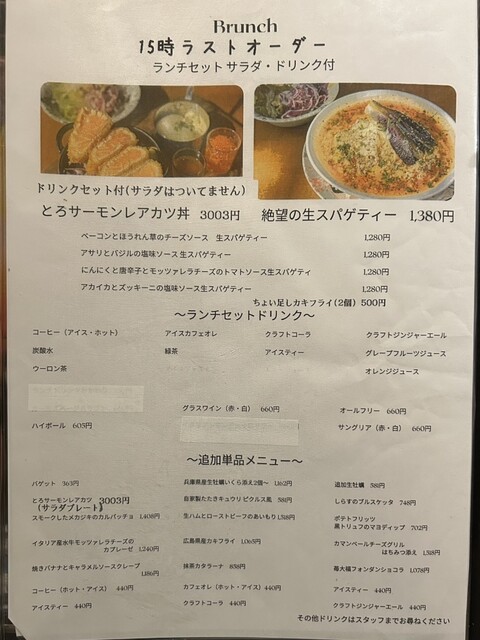 Brunch
15時ラストオーダー
ランチセット サラダ・ドリンク付
ドリンクセット付(サラダはついてません)
とろサーモンレアカツ丼 3003円
絶望の生スパゲティー 1,380円
ベーコンとほうれん草のチーズソース 生スパゲティー 1,280円
アサリとバジルの塩味ソース 生スパゲティー 1,280円
にんにくと唐辛子とモッツァレラチーズのトマトソース生スパゲティ 1,280円
アカイカとズッキーニの塩味ソース生スパゲティー 1,280円
ちょい足しカキフライ(2個) 500円
〜ランチセットドリンク〜
コーヒー（アイス・ホット） アイスカフェオレ クラフトコーラ クラフトジンジャーエール
炭酸水 緑茶 アイスティー グレープフルーツジュース
ウーロン茶 オレンジジュース
グラスワイン（赤・白） 660円 オールフリー 660円
ハイボール 605円 サングリア（赤・白） 660円
〜追加単品メニュー〜
バゲット 363円 兵庫県産生牡蠣いくら添え2個〜 1,162円 追加生牡蠣 581円
とろサーモンレアカツ 3003円 自家製たたきキュウリ ピクルス風 581円 しらすのブルスケッタ 748円
(サラダプレート)
スモークしたメカジキのカルパッチョ 1,408円 生ハムとローストビーフのあいもり 1,518円 ポテトフリッツ
黒トリュフのマヨディップ 702円
イタリア産水牛モッツァレラチーズの
カプレーゼ 1,240円 広島県産カキフライ 1,065円 カマンベールチーズグリル
はちみつ添え 1,318円
焼きバナナとキャラメルソースクレープ
1,186円 抹茶カタラーナ 858円 苺大福フォンダンショコラ 1,078円
コーヒー（ホット・アイス） 440円 カフェオレ（ホット・アイス）440円 アイスティー 440円
アイスティー 440円 クラフトコーラ 440円 クラフトジンジャーエール 440円
その他ドリンクはスタッフまでお尋ねください